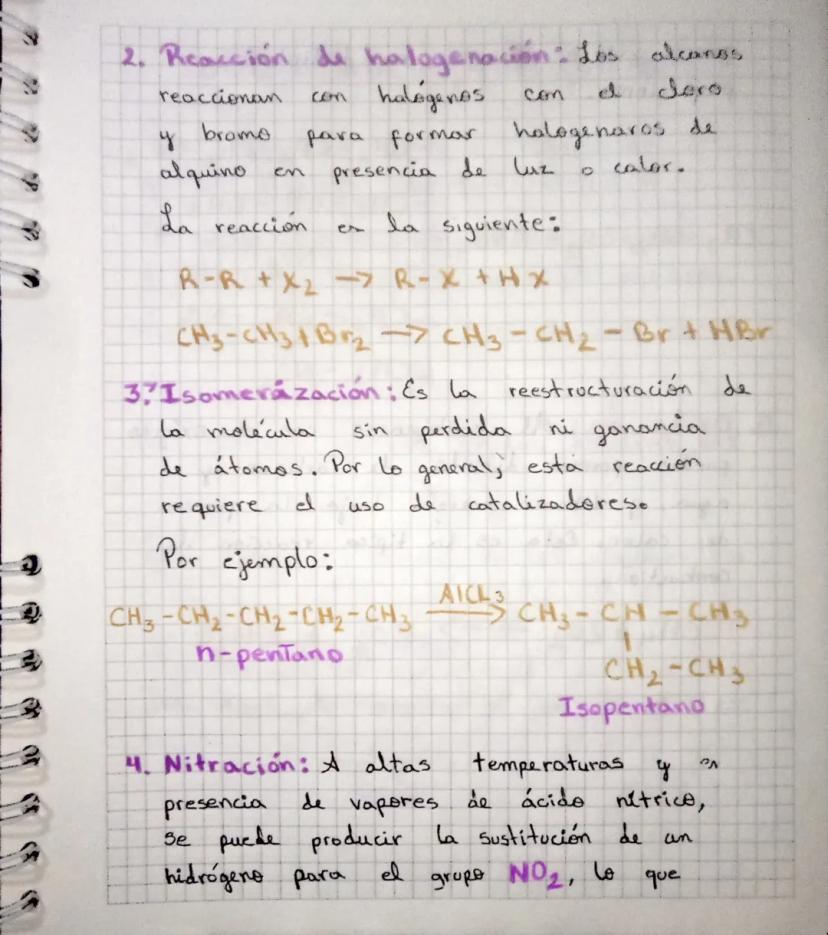 2. Reacción de halogenación: Los alcanos
reaccionan con halógenos con el cloro
y bromo para formar halogenaros de
alquino en presencia de luz o calor.
La reacción es la siguiente:
R-R + X₂ → R-X + HX
CH₃-CH₃+Br₂ → CH₃-CH₂-Br + HBr
3. Isomerázación: Es la reestructuración de
la molécula sin perdida ni ganancia
de átomos. Por lo general, esta reacción
requiere el uso de catalizadores.
Por ejemplo:
AlCL₃
CH₃-CH₂-CH₂-CH₂-CH₃ → CH₃-CH-CH₃
|
n-pentano CH₂-CH₃
Isopentano
4. Nitración: A altas temperaturas y en
presencia de vapores de ácido nítrico,
se puede producir la sustitución de un
hidrógeno para el grupo NO₂, lo que